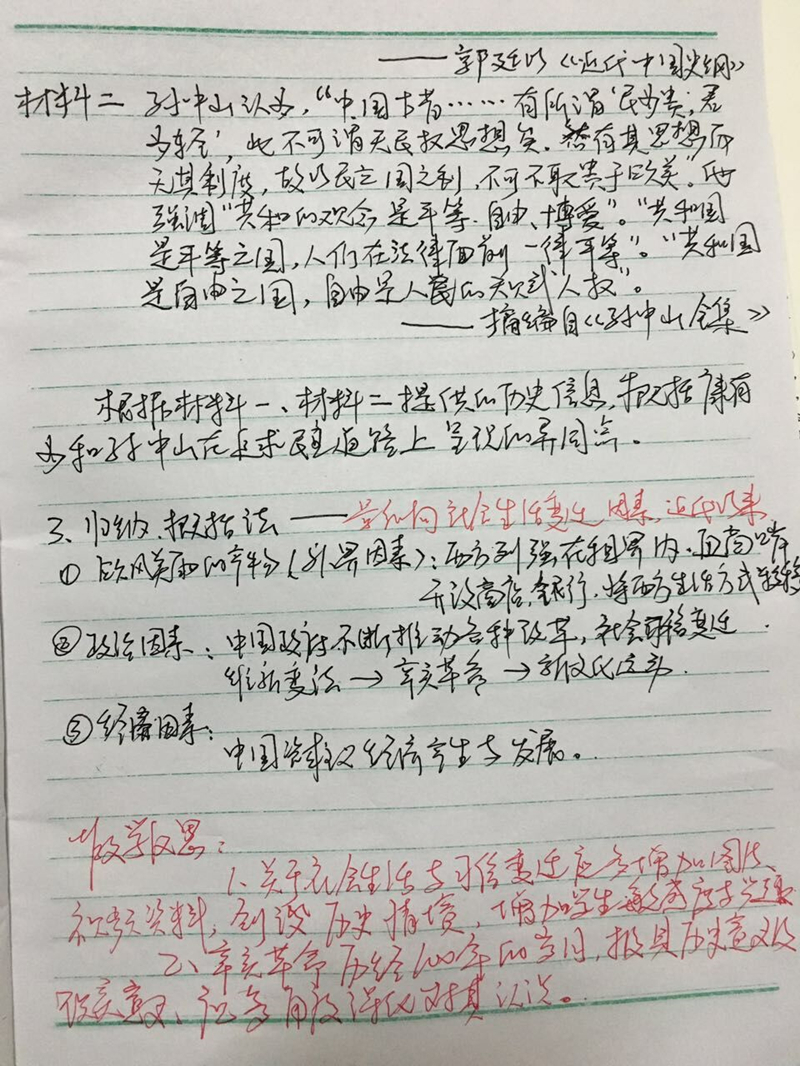 ——郭廷以《近代中国史纲》
材料二 孙中山认为，“中国古昔……有所谓‘民为贵；君
为轻’，此不可谓无民权思想矣．然有其思想而
无其制度，故以民立国之制，不可不取资于欧美”。他
强调“共和的观念是平等．自由、博爱”。“共和国
是平等之国，人们在法律面前一律平等”。“共和国
是自由之国，自由是人民的天赋人权”。
——摘编自《孙中山全集》
根据材料一、材料二提供的历史信息，概括康有
为和孙中山在追求民主道路上呈现的异同点。
3、归纳．概括法—— 社会生活变迁因素，近代以来
① 欧风美雨的 (外界因素)：西方列强在租界内．通商口岸
开设商店，银行，将西方生活方式
②政治因素：中国政府不断推动各种改革，社会习俗变迁．
维新变法→辛亥革命→新文化运动．
③经济因素：
中国资本主义经济产生与发展。
教学反思：
1、关于社会生活与习俗变迁应多增加图片、
视频资料，创设历史情境，增加学生 度与兴趣
2、辛亥革命历经100年的岁月，极具历史意义及
现实意义、应多角度强化对其认识。